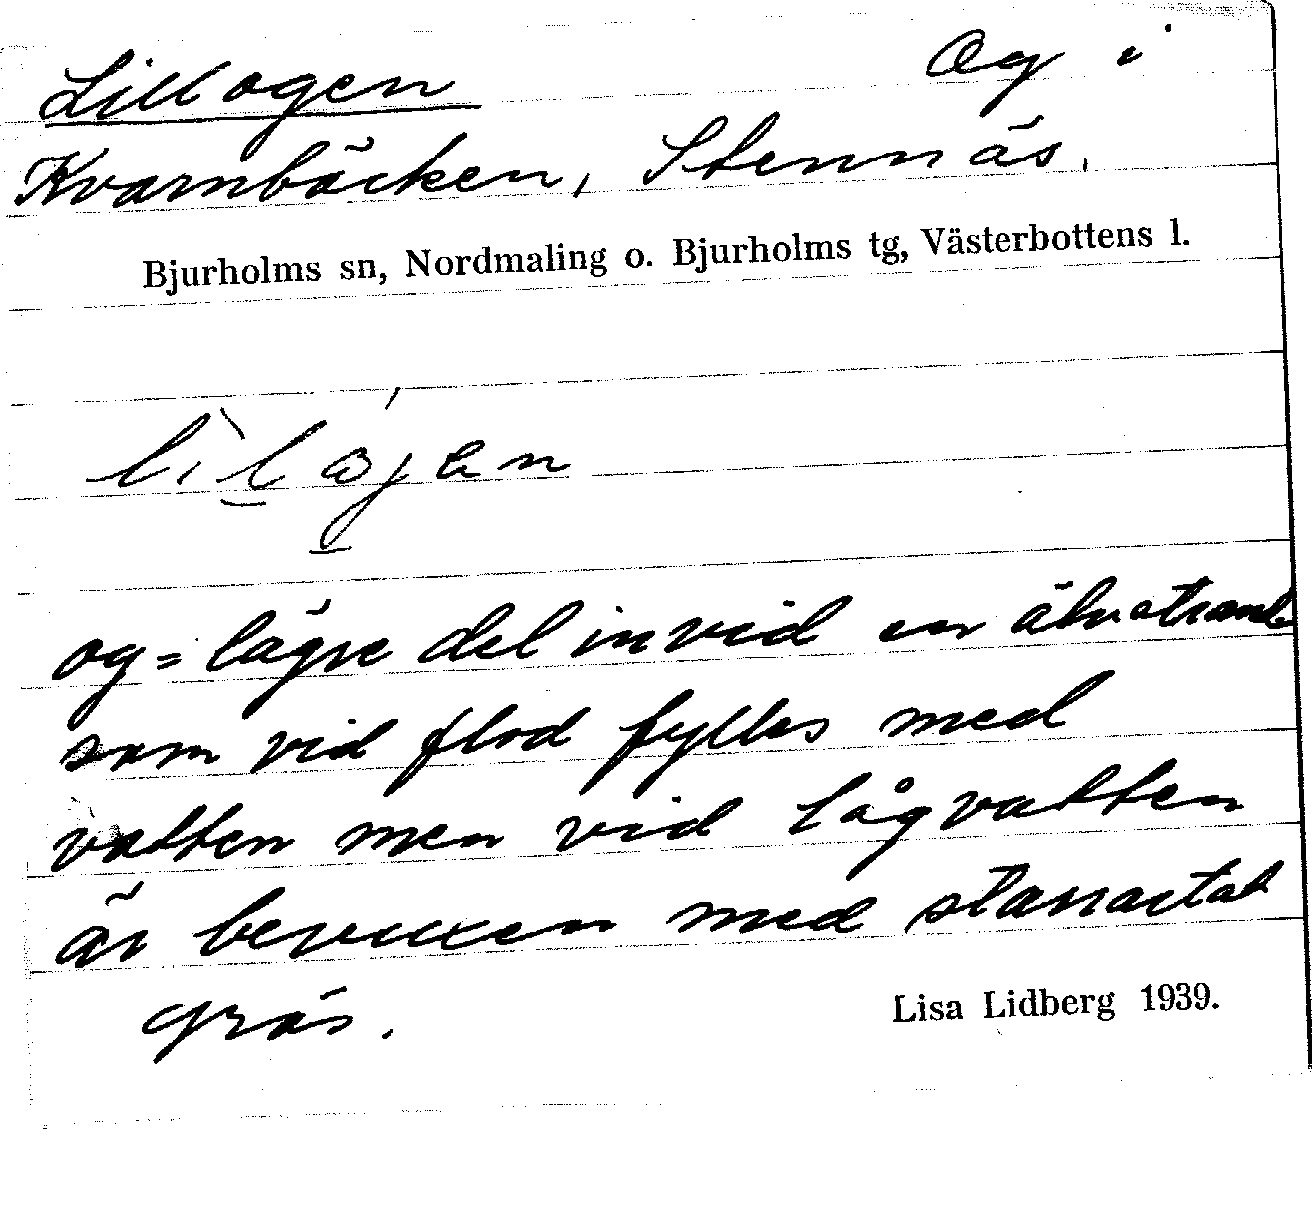 Lillogen Og i
Kvarnbäcken, Stennäs.
Bjurholms sn, Nordmaling o. Bjurholms tg, Västerbottens l.
og = lägre del invid en älvstrand
som vid flod fylles med
vatten men vid lågvatten
är bevuxen med starrartat
gräs.
Lisa Lidberg 1939.